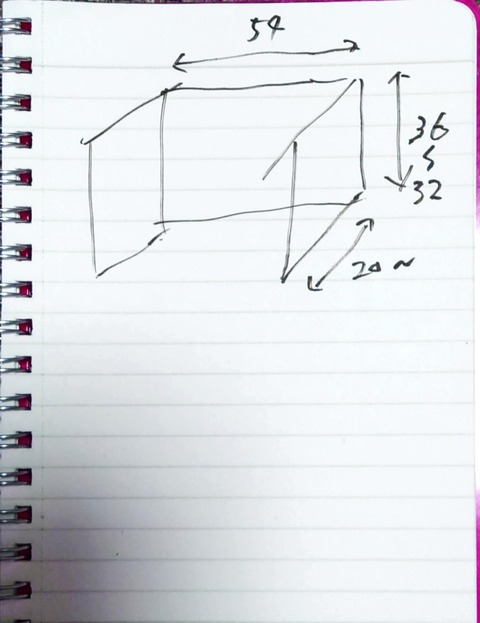 54
36
~
32
20~